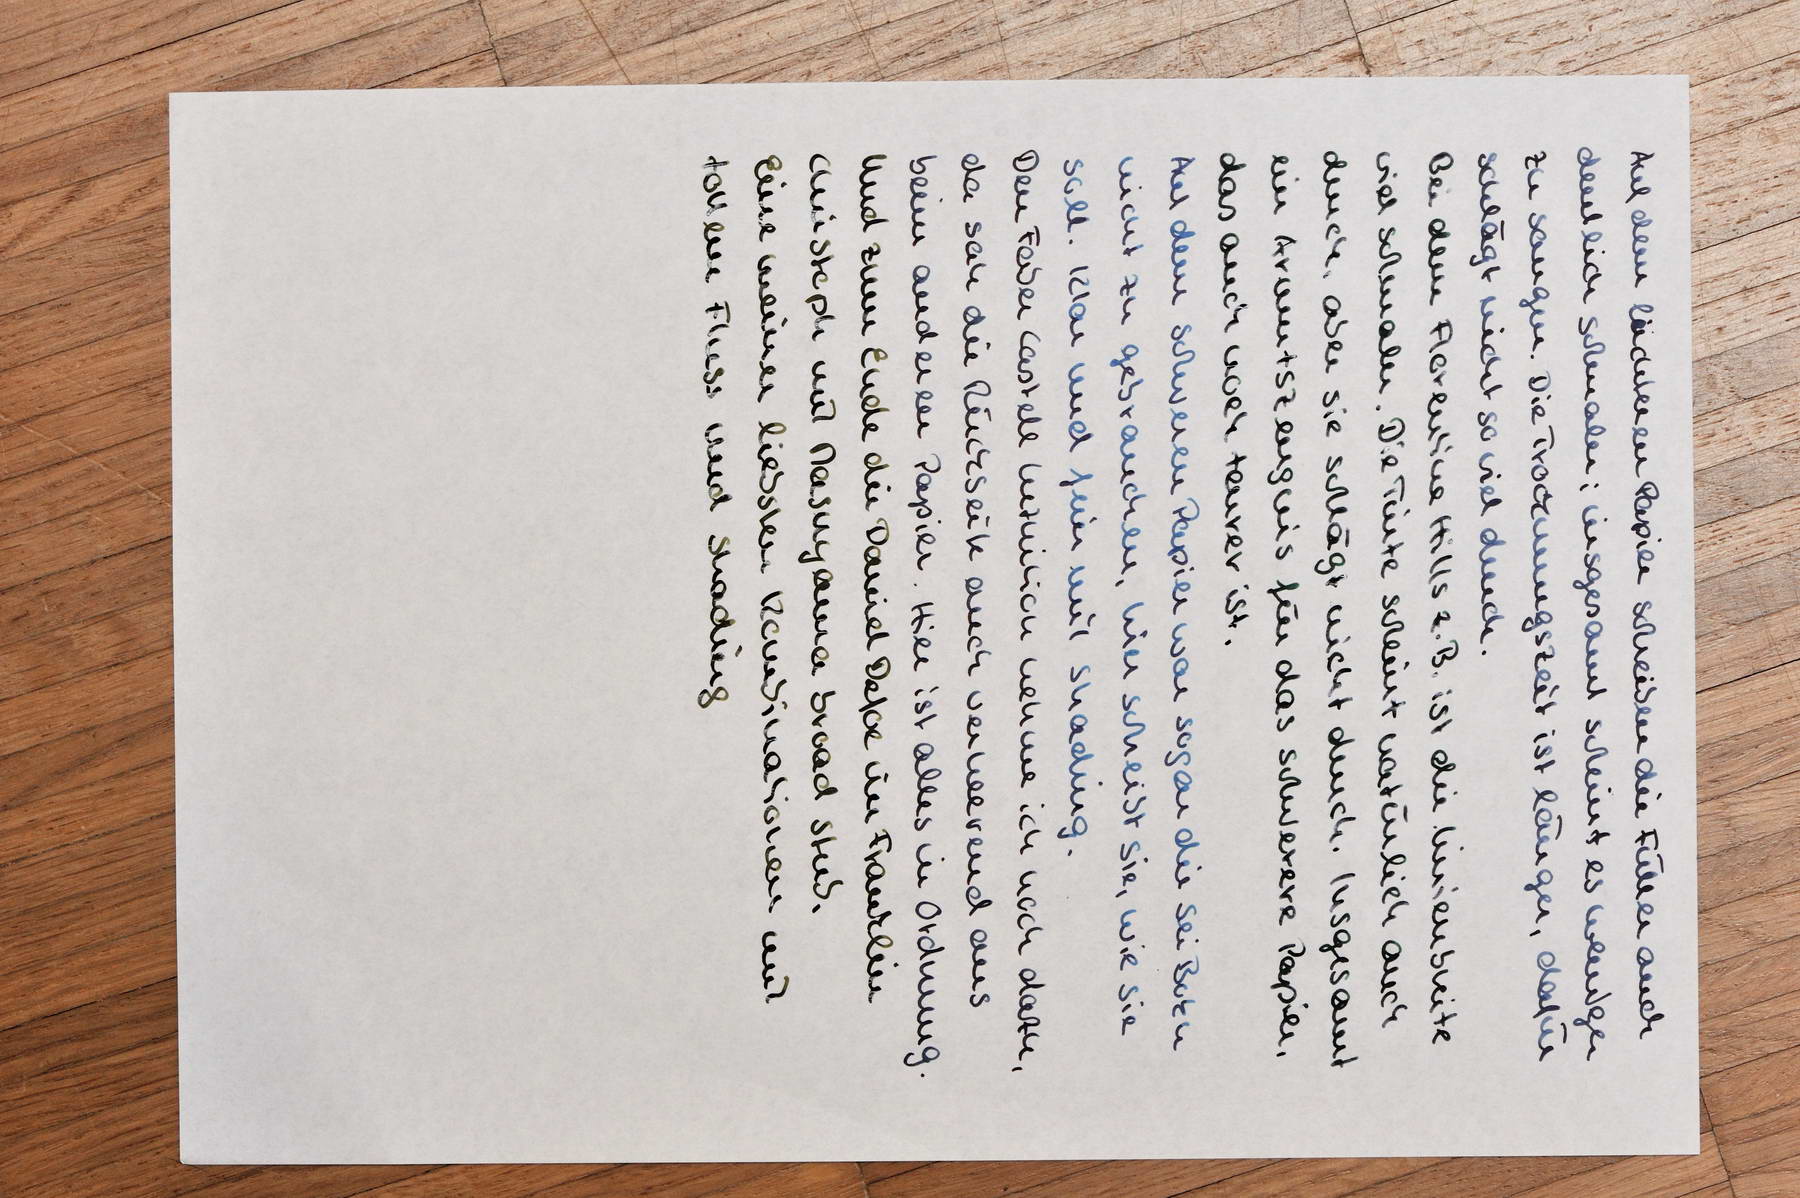 Auf dem löchern Papier schreiben die Füller auch
deutlich schmaler; insgesamt scheint es weniger
zu saugen. Die Trocknungszeit ist länger, dafür
schlägt nicht so viel durch.
Bei dem Florentine Hills z.B. ist die Linienbreite
viel schmaler. Die Tinte scheint natürlich auch
durch, aber sie schlägt nicht durch. Insgesamt
ein Armutszeugnis für das schwerere Papier,
das auch noch teurer ist.
Auf dem schweren Papier war sogar die sei Boku
nicht zu gebrauchen, hier schreibt sie, wie sie
soll. Klar und fein mit shading.
Den Faber Castell hutnlich nehme ich noch dazu,
da sah die Rückseite auch verheerend aus
beim anderen Papier. Hier ist alles in Ordnung.
Und zum Ende die Daniel Defoe im Franklin
Christoph mit Masuyama broad stub.
Eine meiner liebsten Kombinationen mit
tollem Fluss und shading